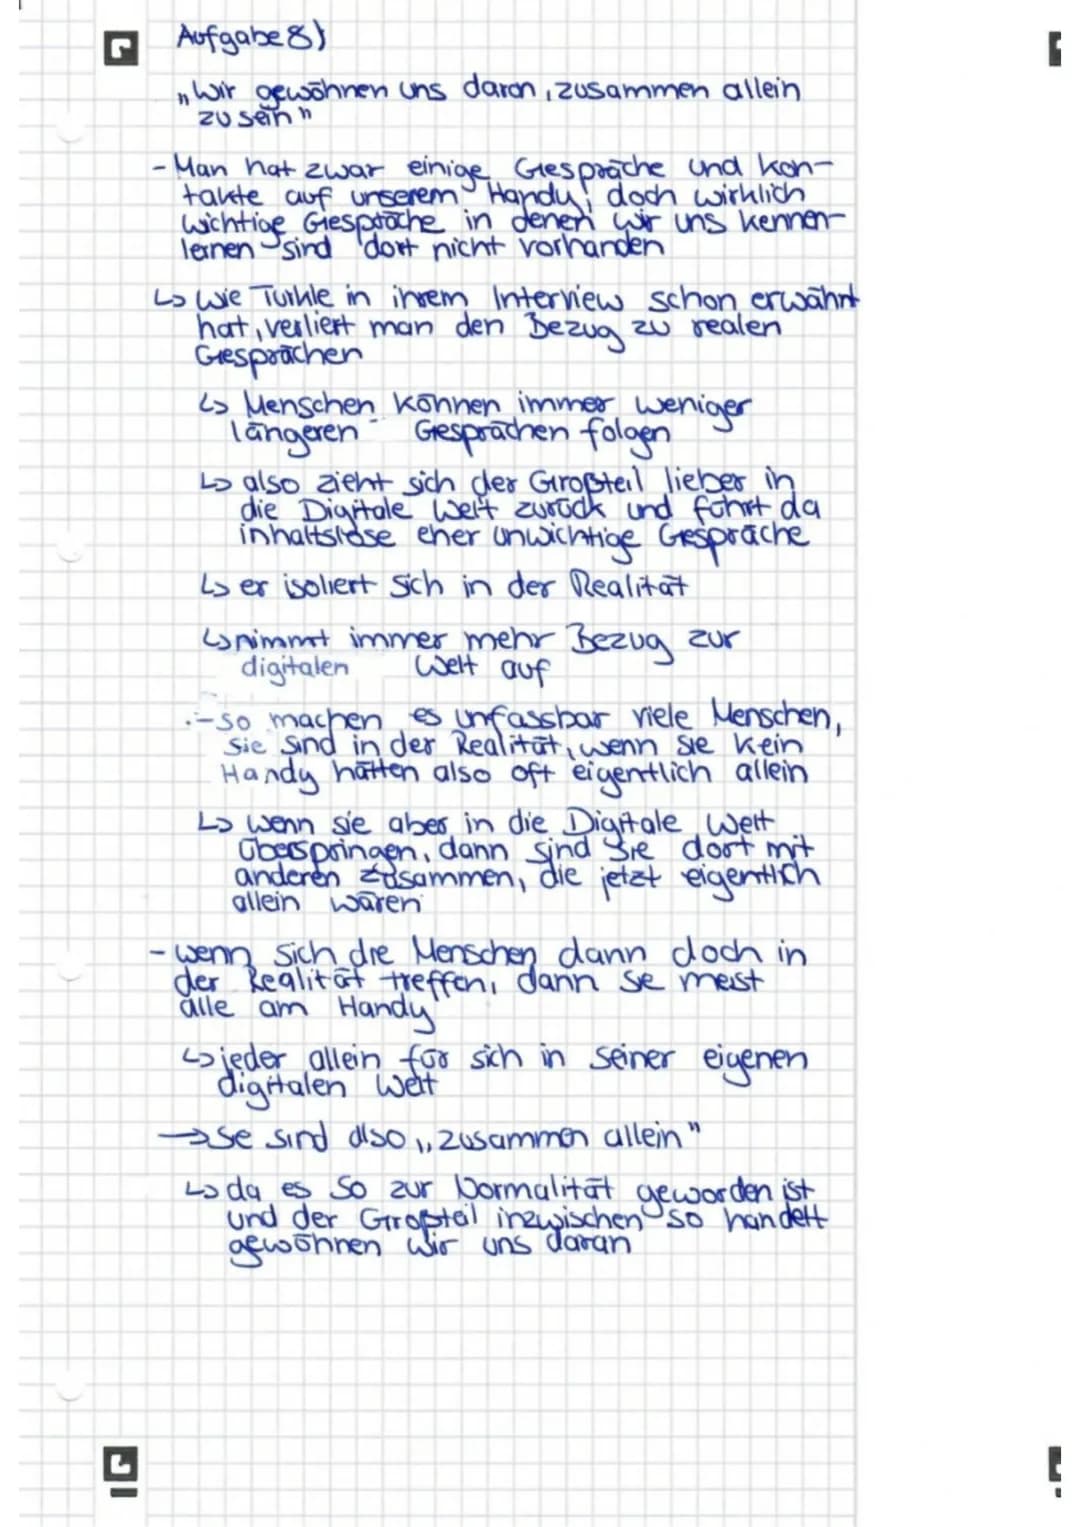 Aufgabe 8)
„Wir gewöhnen uns daran, zusammen allein
zu sein"
- Man hat zwar einige Gespräche und Kon-
takte auf unserem Handy, doch wirklich
wichtige Gespräche in denen wir uns kennen-
lernen sind dort nicht vorhanden
↳ Wie Turkle in ihrem Interview schon erwähnt
hat, verliert man den Bezug zu realen
Gesprächen
↳ Menschen können immer weniger
längeren Gesprächen folgen
↳ also zieht sich der Großteil lieber in
die Digitale Welt zurück und führt da
inhaltslose eher unwichtige Gespräche
↳ er isoliert sich in der Realität
↳ nimmt immer mehr Bezug zur
digitalen Welt auf
- so machen es unfassbar viele Menschen,
sie sind in der Realität, wenn sie kein
Handy hätten also oft eigentlich allein
↳ wenn sie aber in die Digitale Welt
überspringen, dann sind sie dort mit
anderen zusammen, die jetzt eigentlich
allein wären
- wenn sich die Menschen dann doch in
der Realität treffen, dann sie meist
alle am Handy
↳ jeder allein für sich in seiner eigenen
digitalen Welt
→ Sie sind also „zusammen allein"
↳ da es so zur Normalität geworden ist
und der Großteil inzwischen so handelt
gewöhnen wir uns daran